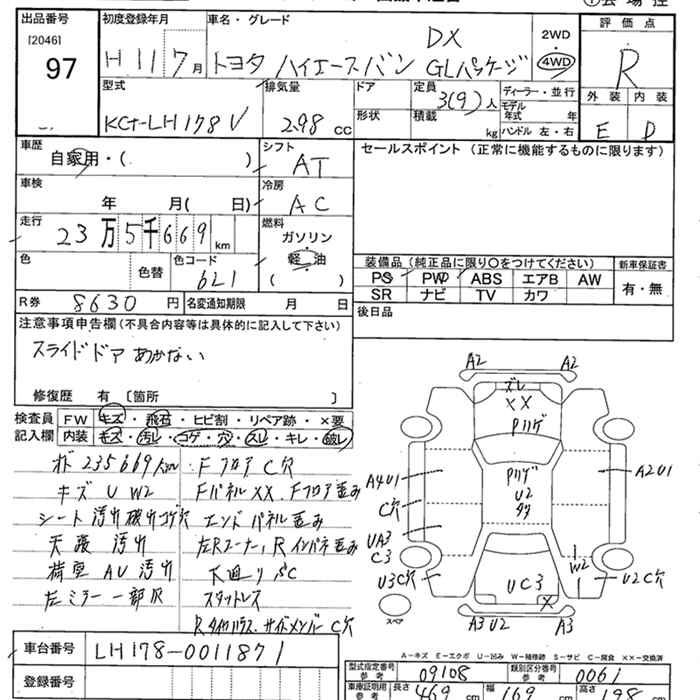 出品番号 初度登録年月 車名・グレード 評価点
[2046] 97 H11 7月 トヨタ ハイエースバン DX GLパッケージ 2WD 4WD R
型式 排気量 ドア 定員 3(9)人 ディーラー・並行 外装 内装
KG-LH178V 2.98 cc 形状 積載 kg モデル年式 年 ハンドル 左・右 E D
車歴 自家用・( ) シフト AT セールスポイント (正常に機能するものに限ります)
車検 年 月( 日) 冷房 AC
走行 23万5千669km 燃料 ガソリン 軽油 ( )
色 色替 色コード 6L1 装備品(純正品に限り○をつけてください) 新車保証書
PS PW ABS エアB AW 有・無
SR ナビ TV カワ
R券 8630円 名変通知期限 月 日 後日品
注意事項申告欄(不具合内容等は具体的に記入して下さい)
スライドドア あかない
修復歴 有 〔箇所 〕
検査員 FW キズ・飛石・ヒビ割・リペア跡・×要
記入欄 内装 キズ・汚レ・コゲ・穴・スレ・キレ・破レ
235669km Fフロア C穴
キズ U W2 Fパネル XX. Fフロア歪み
シート 汚れ 破れ コゲ穴 エンドパネル歪み
天張 汚れ 左Rコーナー, Rインパネ歪み
荷室 AU 汚れ 下廻り SC
左ミラー 一部R スタットレス
Rタイヤハウス.サイドメンバー C穴
A2 A2
ズレ
XX
Pハゲ
A4U1 Pハゲ A2U1
U2
C穴
UA3
C3 W2
U3C穴 UC3 U2C穴
X
スペア A3 U2 A3
A-キズ E-エクボ U-凹み W-補修跡 S-サビ C-腐食 ××-交換済
車台番号 LH178-0011871
型式指定番号 参考 09108 類別区分番号 参考 0061
登録番号 車庫証明用 参考 長さ 469 cm 幅 169 cm 高さ 198 cm